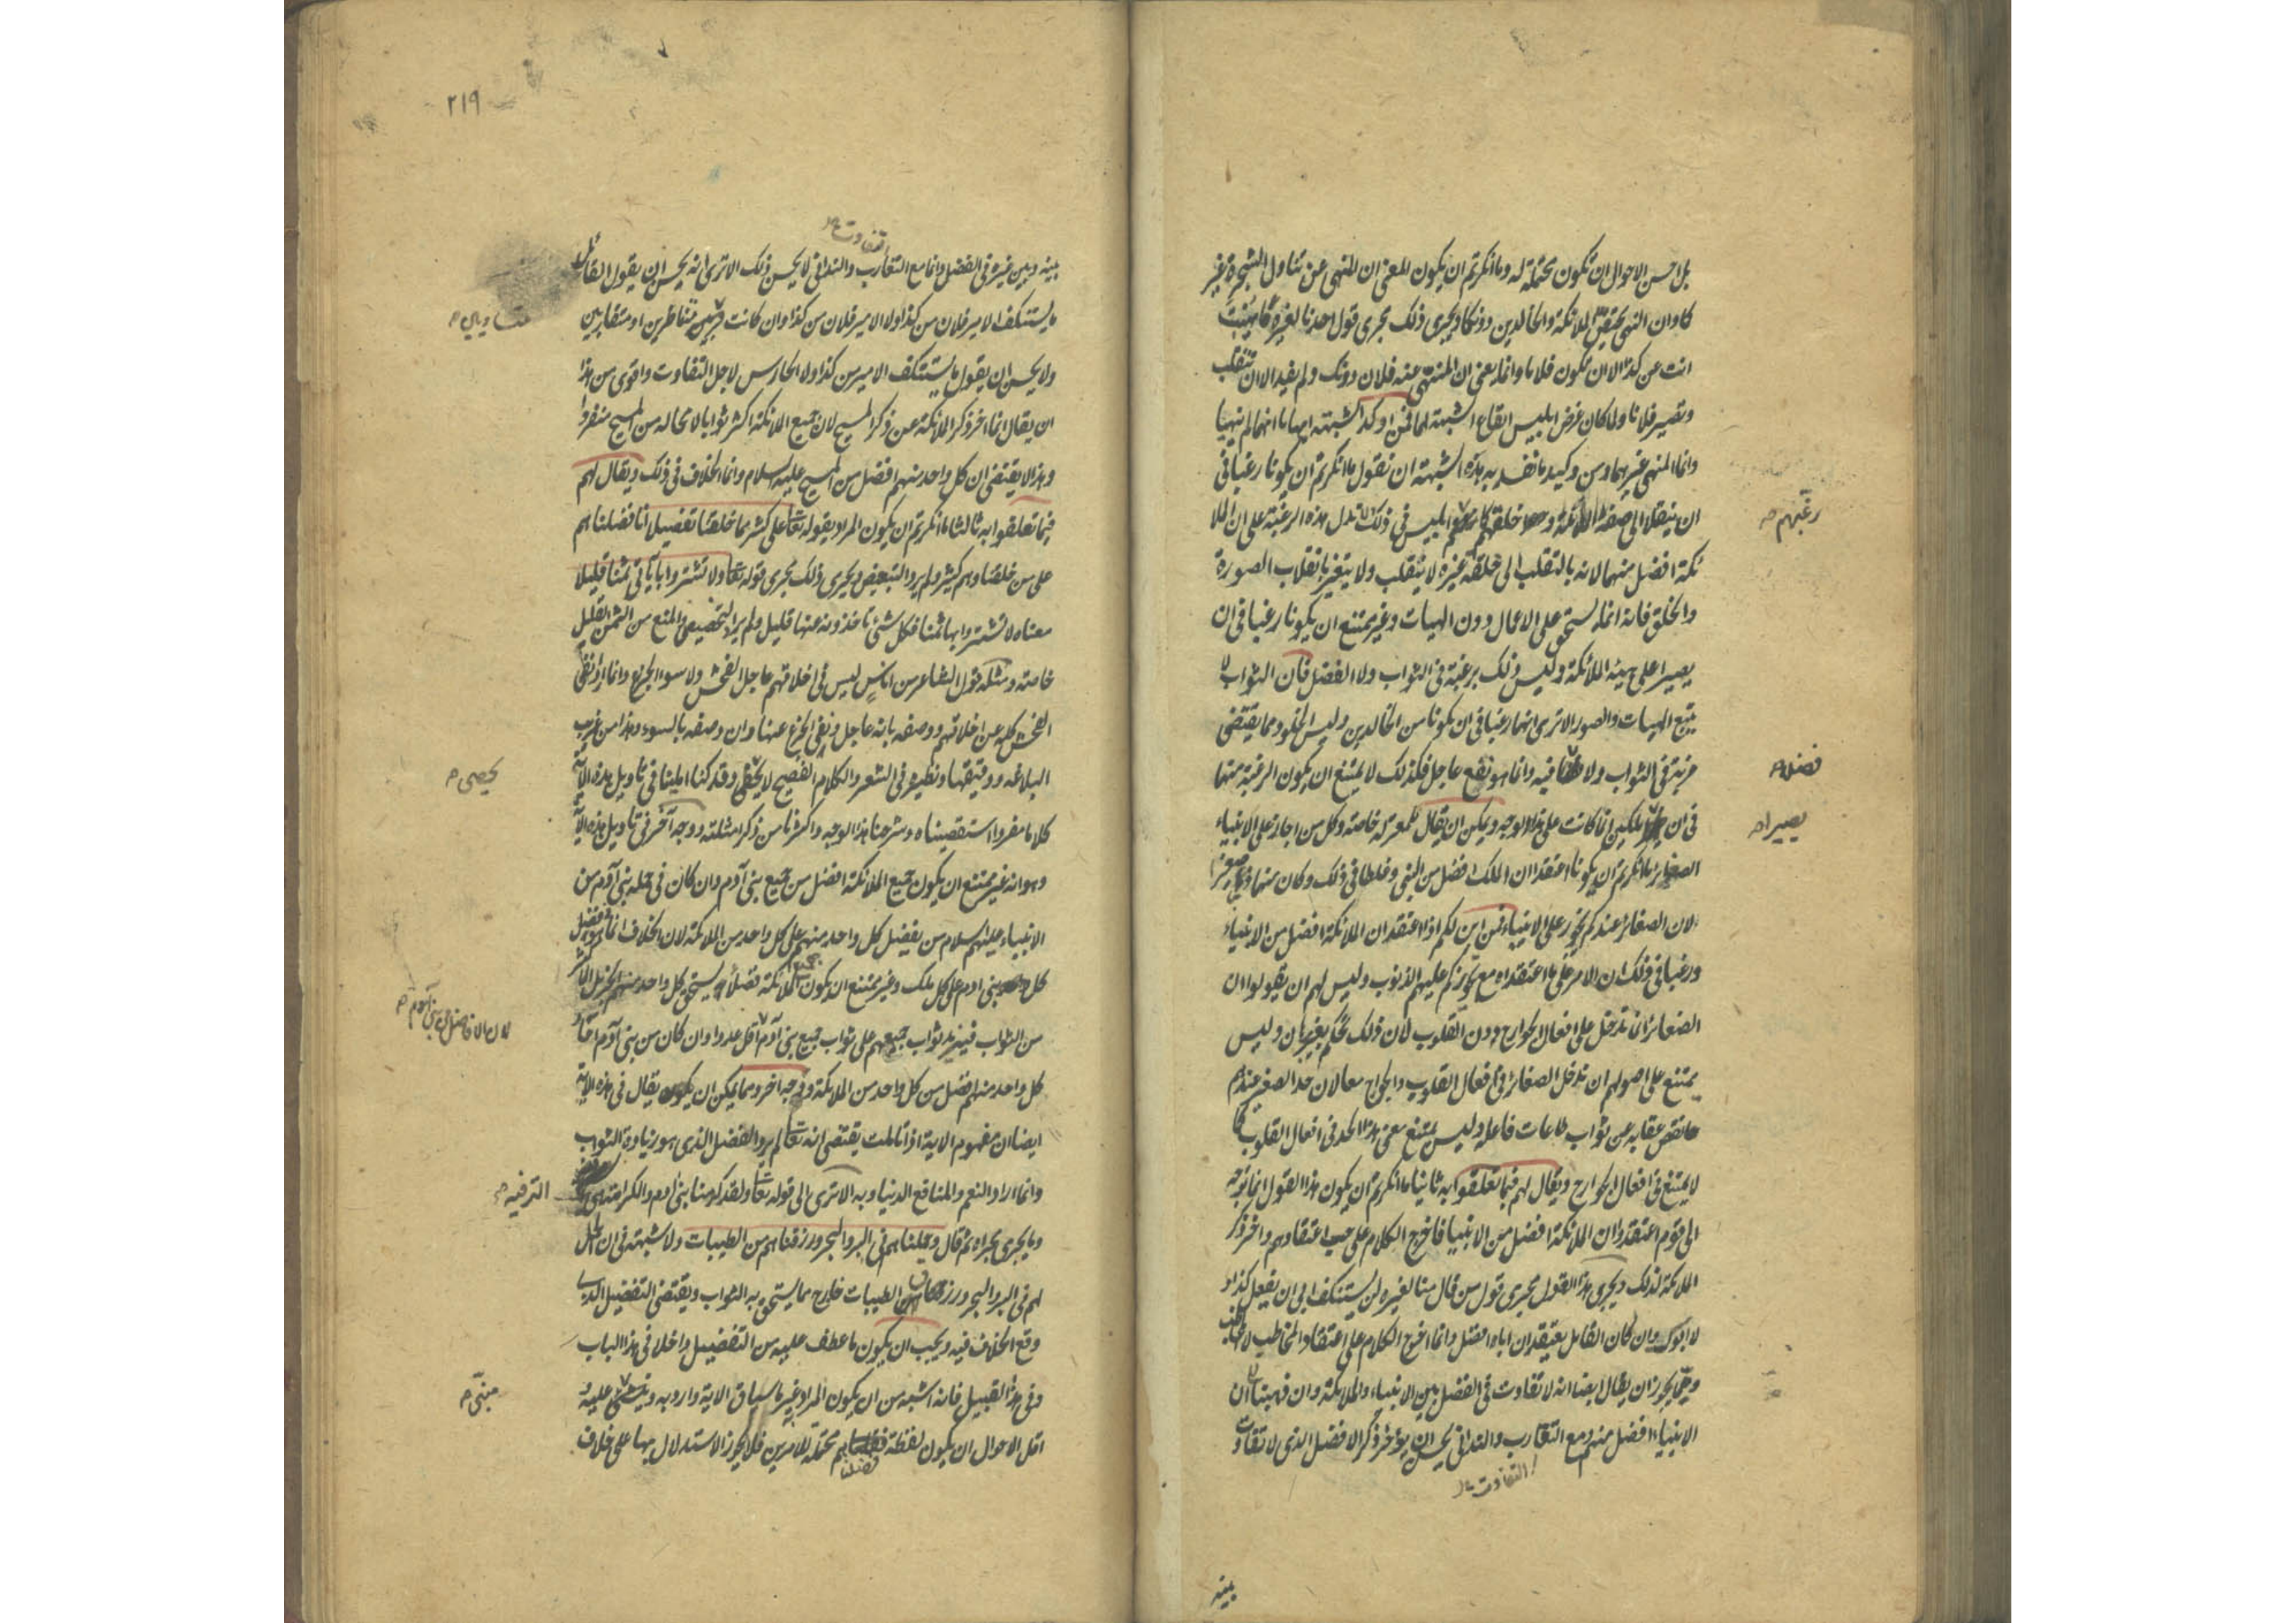 بل احسن الاحوال ان تكون محتملة له وما انكرتم ان يكون المعنى ان المنهى عن تناول الشجرة غير
كما وان النهى يختص الملائكة والخالدين دونكما ويجرى ذلك مجرى قول احدنا لغيره ما نهيت
انت عن كذا الا ان تكون فلانا وانما يعنى ان المنهى عنه فلان دونك ولم يفيد الا ان تنقلب
وتصير فلانا ولما كان غرض ابليس ايقاع الشبهة لهما فمن اوكد الشبهة ايهاما انهما لم ينهيا
وانما المنهى غيرهما ومن وكيد ما نفسد به هذه الشبهة ان نقول ما انكرتم ان يكونا رغبا فى
ان ينقلا الى صفة الملائكة وخلقهم كما رغبهم ابليس فى ذلك ولا تدل هذه الرغبة على ان الملا
ئكة افضل منهما لانه بالتقلب الى خلقة غيره لا يتقلب ولا يتغير بانقلاب الصورة
والخلق فانه انما يستحق على الاعمال دون الهيات وغير ممتنع ان يكونا رغبا فى ان
يصيرا على هيئة الملائكة وليس ذلك برغبة فى الثواب ولا الفضل فان الثواب لا
يتبع الهيات والصور الا ترى انهما رغبا فى ان يكونا من الخالدين وليس الخلود مما يقتضى
مزية فى الثواب ولا فضلا فيه وانما هو نفع عاجل فكذلك لا يمتنع ان يكون الرغبة منهما
فى ان يصيرا ملكين انما كانت على هذا الوجه ويمكن ان يقال للمعتزلة خاصة وكل من اجاز على الانبياء
الصغاير ما انكرتم ان يكونا اعتقدا ان الملك افضل من النبى وغلطا فى ذلك وكان منهما ذنبا صغيرا
لان الصغائر عندكم تجوز على الانبياء فمن اين لكم اذا اعتقدا ان الملائكة افضل من الانبياء
ورغبا فى ذلك ان الامر على ما اعتقداه مع تجويزكم عليهم الذنوب وليس لهم ان يقولوا ان
الصغائر انما تدخل على افعال الجوارح دون القلوب لان ذلك تحكم بغير برهان وليس
يمتنع على اصولهم ان تدخل الصغائر فى افعال القلوب والجوارح معا لان حد الصغير عندهم
ما نقص عقابه عن ثواب طاعات فاعله وليس يمتنع معنى هذا الحد فى افعال القلوب كما
لا يمتنع فى افعال الجوارح ويقال لهم فيما تعلقوا به ثانيا ما انكرتم ان يكون هذا القول انما توجه
الى قوم اعتقدوا ان الملائكة افضل من الانبيا فاخرج الكلام على حسب اعتقادهم واخر ذكر
الملائكة لذلك ويجرى هذا القول مجرى قول من قال منا لغيره لن يستنكف ابى ان يفعل كذا و
لا ابوك وان كان القايل يعتقد ان اباه افضل وانما اخرج الكلام على اعتقاد المخاطب لا المخاطب
ومما يجوز ان يقال ايضا انه لا تفاوت فى الفضل بين الانبياء والملائكة وان ذهبنا الى ان
الانبياء افضل منهم ومع التقارب والتدانى يحسن ان يؤخر ذكر الافضل الذى لا تفاوت
التفاوت
بينه
رغبهم
فضلا
يصيرا
٢١٩
تفاوت
بينه وبين غيره فى الفضل وانما مع التقارب والتدانى لا يحسن ذلك الا ترى انه يحسن ان يقول القائل
ما يستنكف الامير فلان من كذا ولا الامير فلان من كذا وان كانت متناظرين او متقاربين
ولا يحسن ان يقول ما يستنكف الامير من كذا ولا الحارس لاجل التفاوت واقوى من هذا
ان يقال انما اخر ذكر الملائكة عن ذكر المسيح لان جميع الملائكة اكثر ثوابا لا محالة من المسيح منفردا
وهذا لا يقتضى ان كل واحد منهم افضل من المسيح عليه السلام وانما الخلاف فى ذلك ويقال لهم
فيما تعلقوا به ثالثا ما انكرتم ان يكون المراد بقوله تعا على كثير مما خلقنا تفضيلا انا فضلناهم
على من خلقنا وهم كثير ولم يرد التبعيض ويجرى ذلك مجرى قوله تعا ولا تشتروا باياتى ثمنا قليلا
معناه لا تشتروا بها ثمنا فكل شئ تاخذونه عنها قليل ولم يرد التخصيص والمنع من الثمن القليل
خاصة ومثله قول الشاعر من اناس ليس فى اخلاقهم عاجل الفحش ولا سوء الجزع وانما اراد نفى
الفحش كله عن اخلاقهم ووصفه بانه عاجل ونفى الجزع عنها وان وصفه بالسوء وهذا من غريب
البلاغة ودقيقها ونظيره فى الشعر والكلام الفصيح لا يحصى وقد كنا املينا فى تاويل هذه الآية
كلاما مفردا استقصيناه وشرحنا هذا الوجه واكثرنا من ذكر امثلته ووجه آخر فى تاويل هذه الآية
وهو انه غير ممتنع ان يكون جميع الملائكة افضل من جميع بنى آدم وان كان فى جملة بنى آدم من
الانبياء عليهم السلام من يفضل كل واحد منهم على كل واحد من الملائكة لان الخلاف انما هو فى فضل
كل بنى ادم على كل ملك وغير ممتنع ان يكون جميع الملائكة فضلا يستحق كل واحد منهم الجزيل الاكثر
من الثواب فيزيد ثواب جميعهم على ثواب جميع بنى آدم اقل عددا وان كان من بنى آدم آحاد
كل واحد منهم افضل من كل واحد من الملائكة ووجه اخر ومما يمكن ان يقال فى هذه الاية
ايضا ان مفهوم الاية اذا تاملت يقتضى انه تعا لم يرد الفضل الذى هو زيادة الثواب
وانما اراد النعم والمنافع الدنياوية الا ترى الى قوله تعا ولقد كرمنا بنى ادم والكرامة انما هى
وما يجرى مجراه ثم قال وحملناهم فى البر والبحر ورزقناهم من الطيبات ولا شبهة فى ان الحمل
لهم فى البر والبحر ورزق الطيبات خارج مما يستحق به الثواب ويقتضى التفضيل الذى
وقع الخلاف فيه ويجب ان يكون ما عطف عليه من التفضيل داخلا فى هذا الباب
وفى هذا القبيل فانه اشبه من ان يكون المراد غير ما سياق الاية وارد به ومبنى عليه
اقل الاحوال ان يكون لفظة فضلناهم محتملة للامرين فلا يجوز الاستدلال بها على خلاف
فضلنا
متساويين
يحصى
لان الافاضل من بنى آدم
الترفيه
مبنى